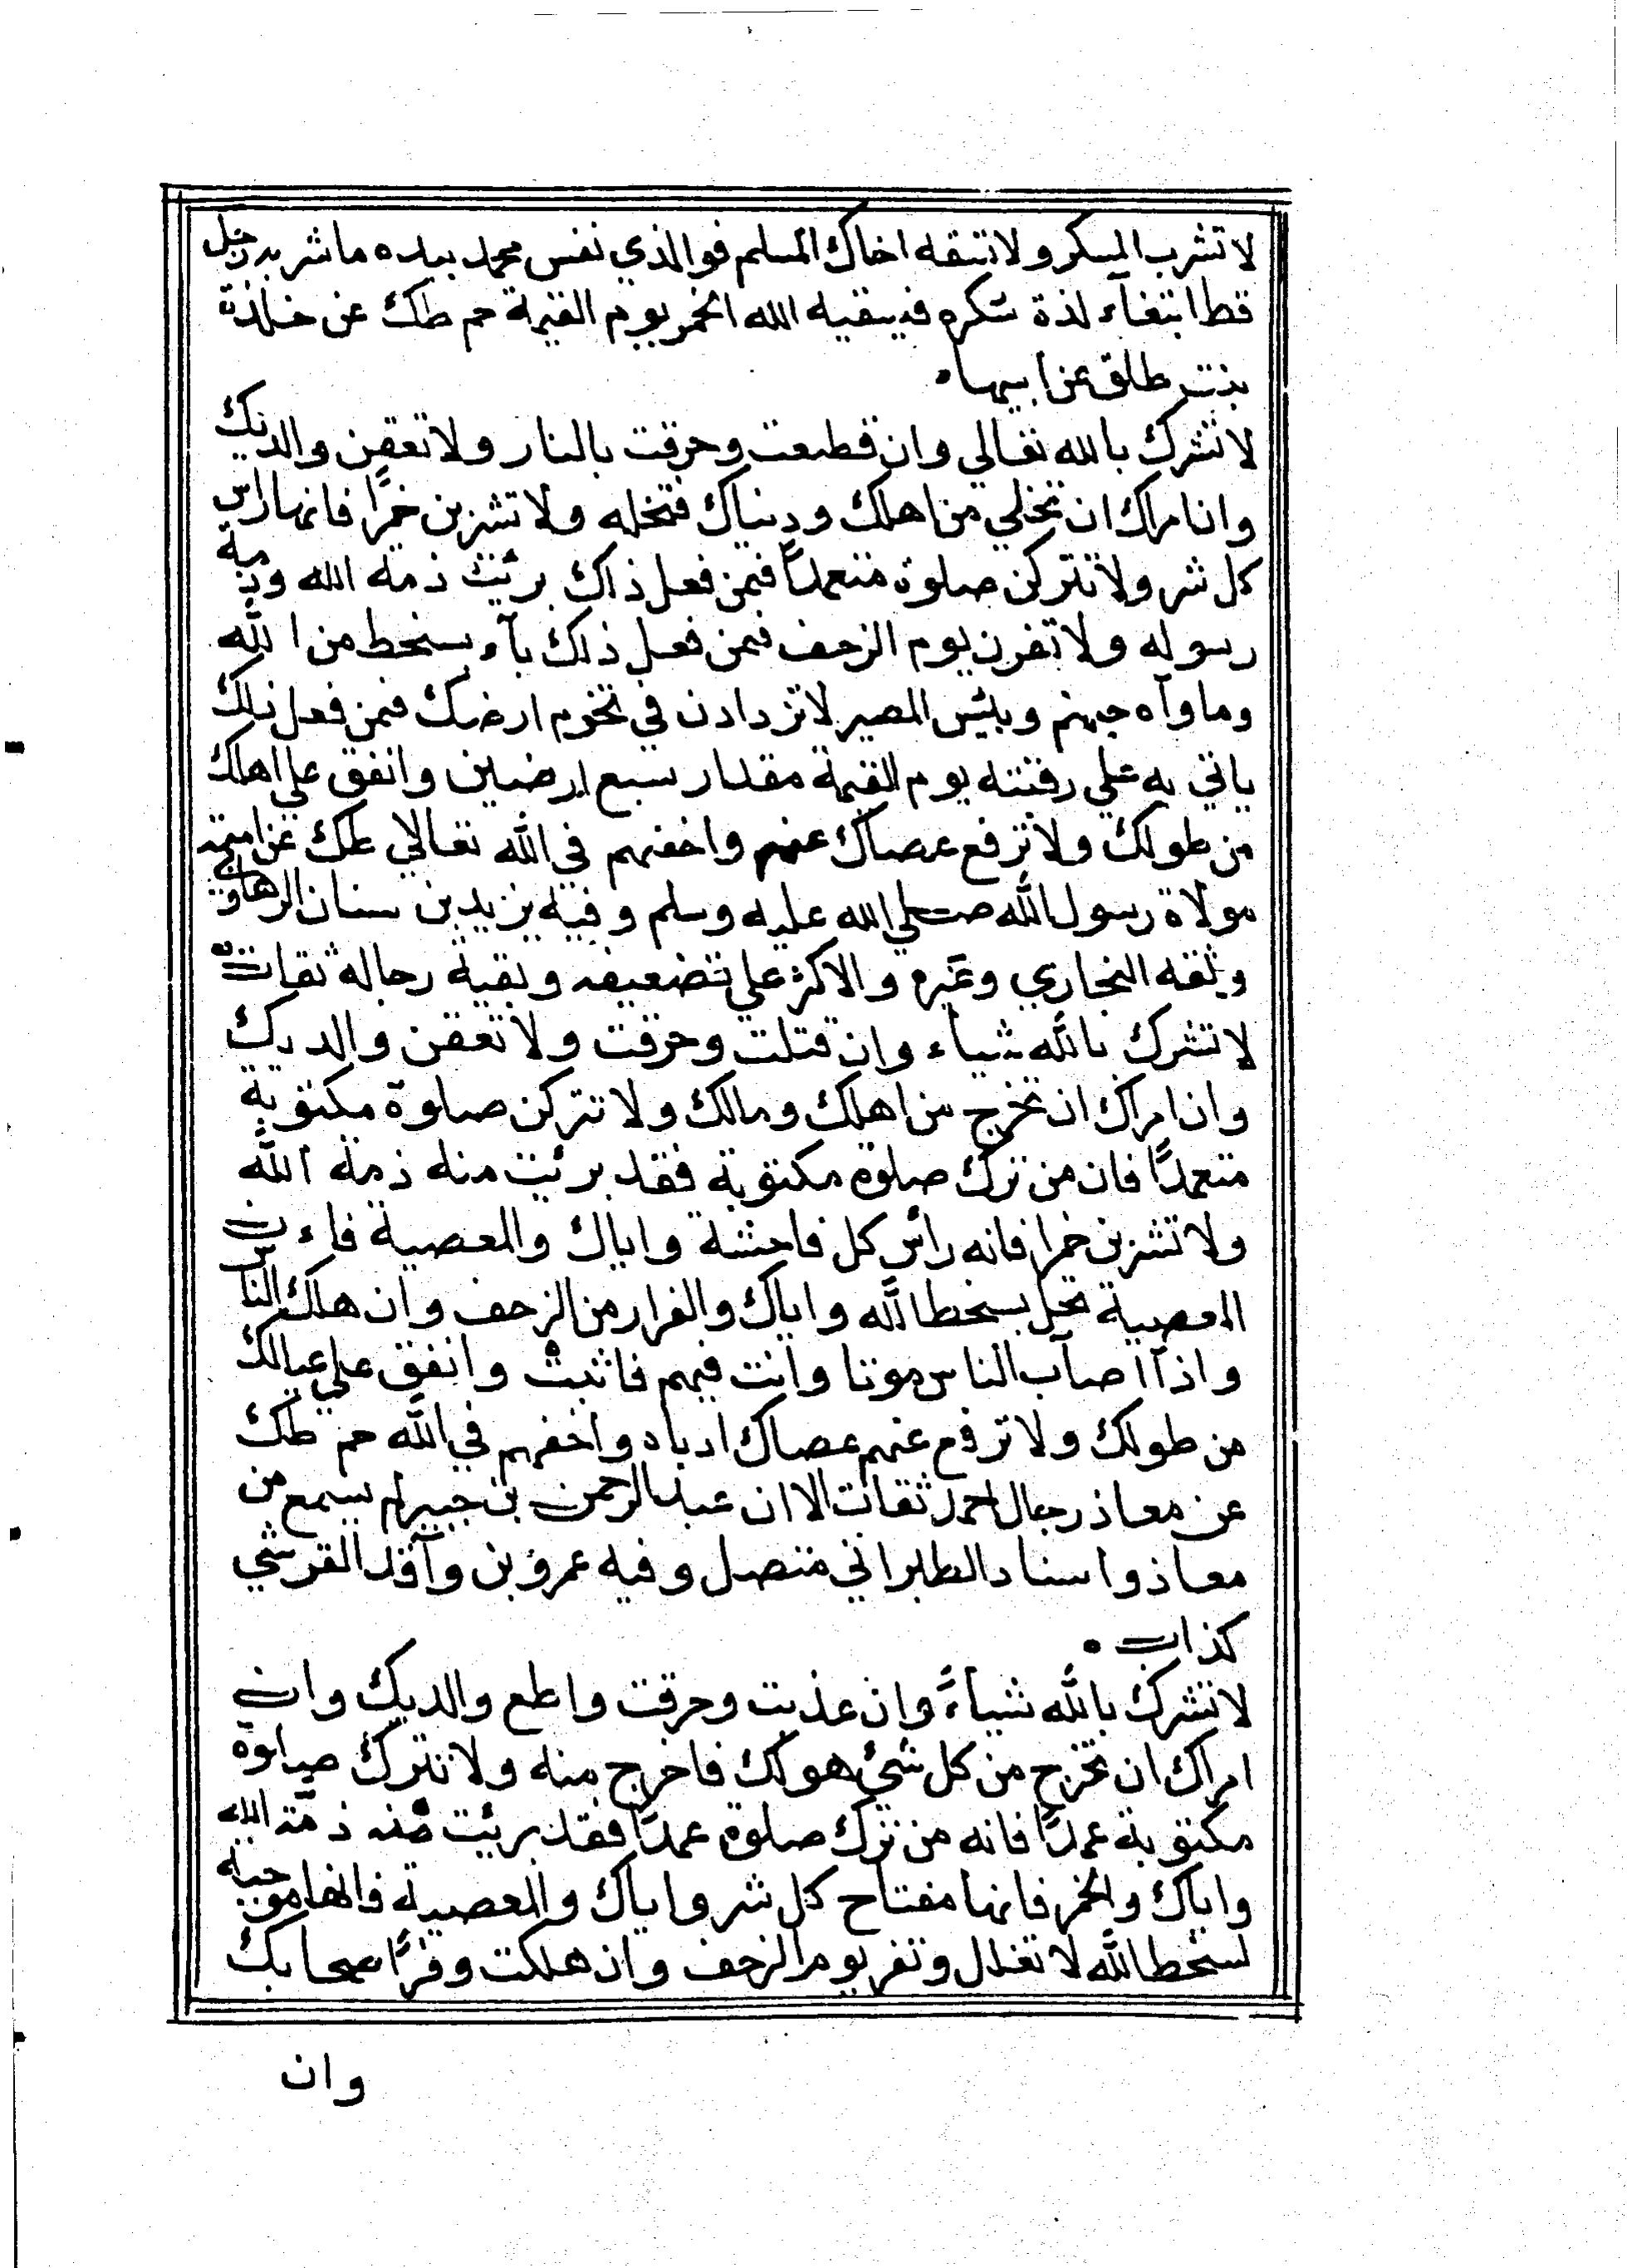 لا تشرب المسكر ولا تسقه اخاك المسلم فوالذي نفس محمد بيده ما شربه رجل
قط ابتغآء لذة سكره فيسقيه الله الخمر يوم القيمة حم طك عن خلدة
بنت طلق عن ابيها ۰
لا تشرك بالله تعالي وان قطعت وحرقت بالنار ولا تعقن والديك
وان امراك ان تخلي من اهلك ودنياك فتخله ولا تشربن خمرًا فانها راس
كل شر ولا تتركن صلوة متعمدًا فمن فعل ذاك برئت ذمة الله وذمة
رسوله ولا تفرن يوم الزحف فمن فعل ذلك بآء بسخط من الله
وماوآه جهنم وبئس المصير لا تزدادن في تخوم ارضك فمن فعل ذلك
ياتي به علي رقبته يوم القيمة مقدار سبع ارضين وانفق علي اهلك
من طولك ولا ترفع عصاك عنهم واخفهم في الله تعالي طك عن اميمة
مولاة رسول الله صلي الله عليه وسلم وفيه يزيد بن سنان الرهاوي
وثقه البخاري وغيره والاكثر علي تضعيفه وبقية رجاله ثقات
لا تشرك بالله شياء وان قتلت وحرقت ولا تعقن والديك
وان امراك ان تخرج من اهلك ومالك ولا تتركن صلوة مكتوبة
متعمدًا فان من ترك صلوة مكتوبة فقد برئت منه ذمة الله
ولا تشربن خمرا فانه رأس كل فاحشة واياك والمعصية فاءن
المعصية تحل بسخط الله واياك والفرار من الزحف وان هلك الناس
واذآ اصآب الناس موتا وانت فيهم فاثبت وانفق علي عيالك
من طولك ولا ترفع عنهم عصاك ادبا واخفهم في الله حم طك
عن معاذ رجال احمد ثقات الا ان عبد الرحمن بن جبير لم يسمع من
معاذ واسناد الطبراني متصل وفيه عمرو بن وآقد القرشي
كذاب ۰
لا تشرك بالله شيأً وان عذبت وحرقت واطع والديك وان
امراك ان تخرج من كل شئ هو لك فاخرج منه ولا تترك صلوة
مكتوبة عمدًا فانه من ترك صلوة عمدًا فقد برئت منه ذمة الله
واياك والخمر فانها مفتاح كل شر واياك والمعصية فانها موجبة
لسخط الله لا تغلل وتفر يوم الزحف وان هلكت وفرّ اصحابك
وان